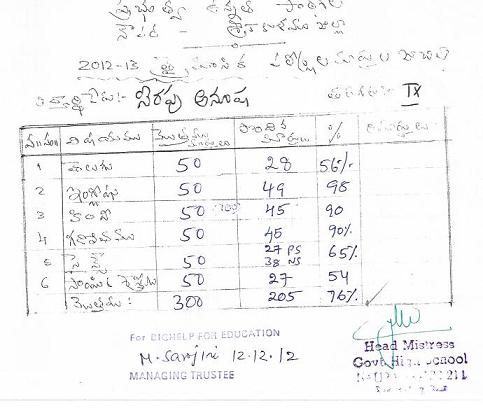 ప్రభుత్వ ఉన్నత పాఠశాల
శ్రీకాకుళము జిల్లా
2012-13 త్రైమాసిక పరీక్షల మార్కుల జాబితా
విద్యార్థి పేరు:- జీరపు అనూష తరగతి: IX
వ.సం విషయము మొత్తము మార్కులు పొందిన మార్కులు %
1 తెలుగు 50 28 56%
2 ఇంగ్లీషు 50 49 98
3 హిందీ 50 45 90
4 గణితము 50 45 90%
5 సైన్స్ 50 27 PS 38 NS 65%
6 సాంఘిక శాస్త్రం 50 27 54
మొత్తము: 300 205 76%
For BIGHELP FOR EDUCATION
M. Sarojini 12.12.12
MANAGING TRUSTEE
Head Mistress
Govt High School